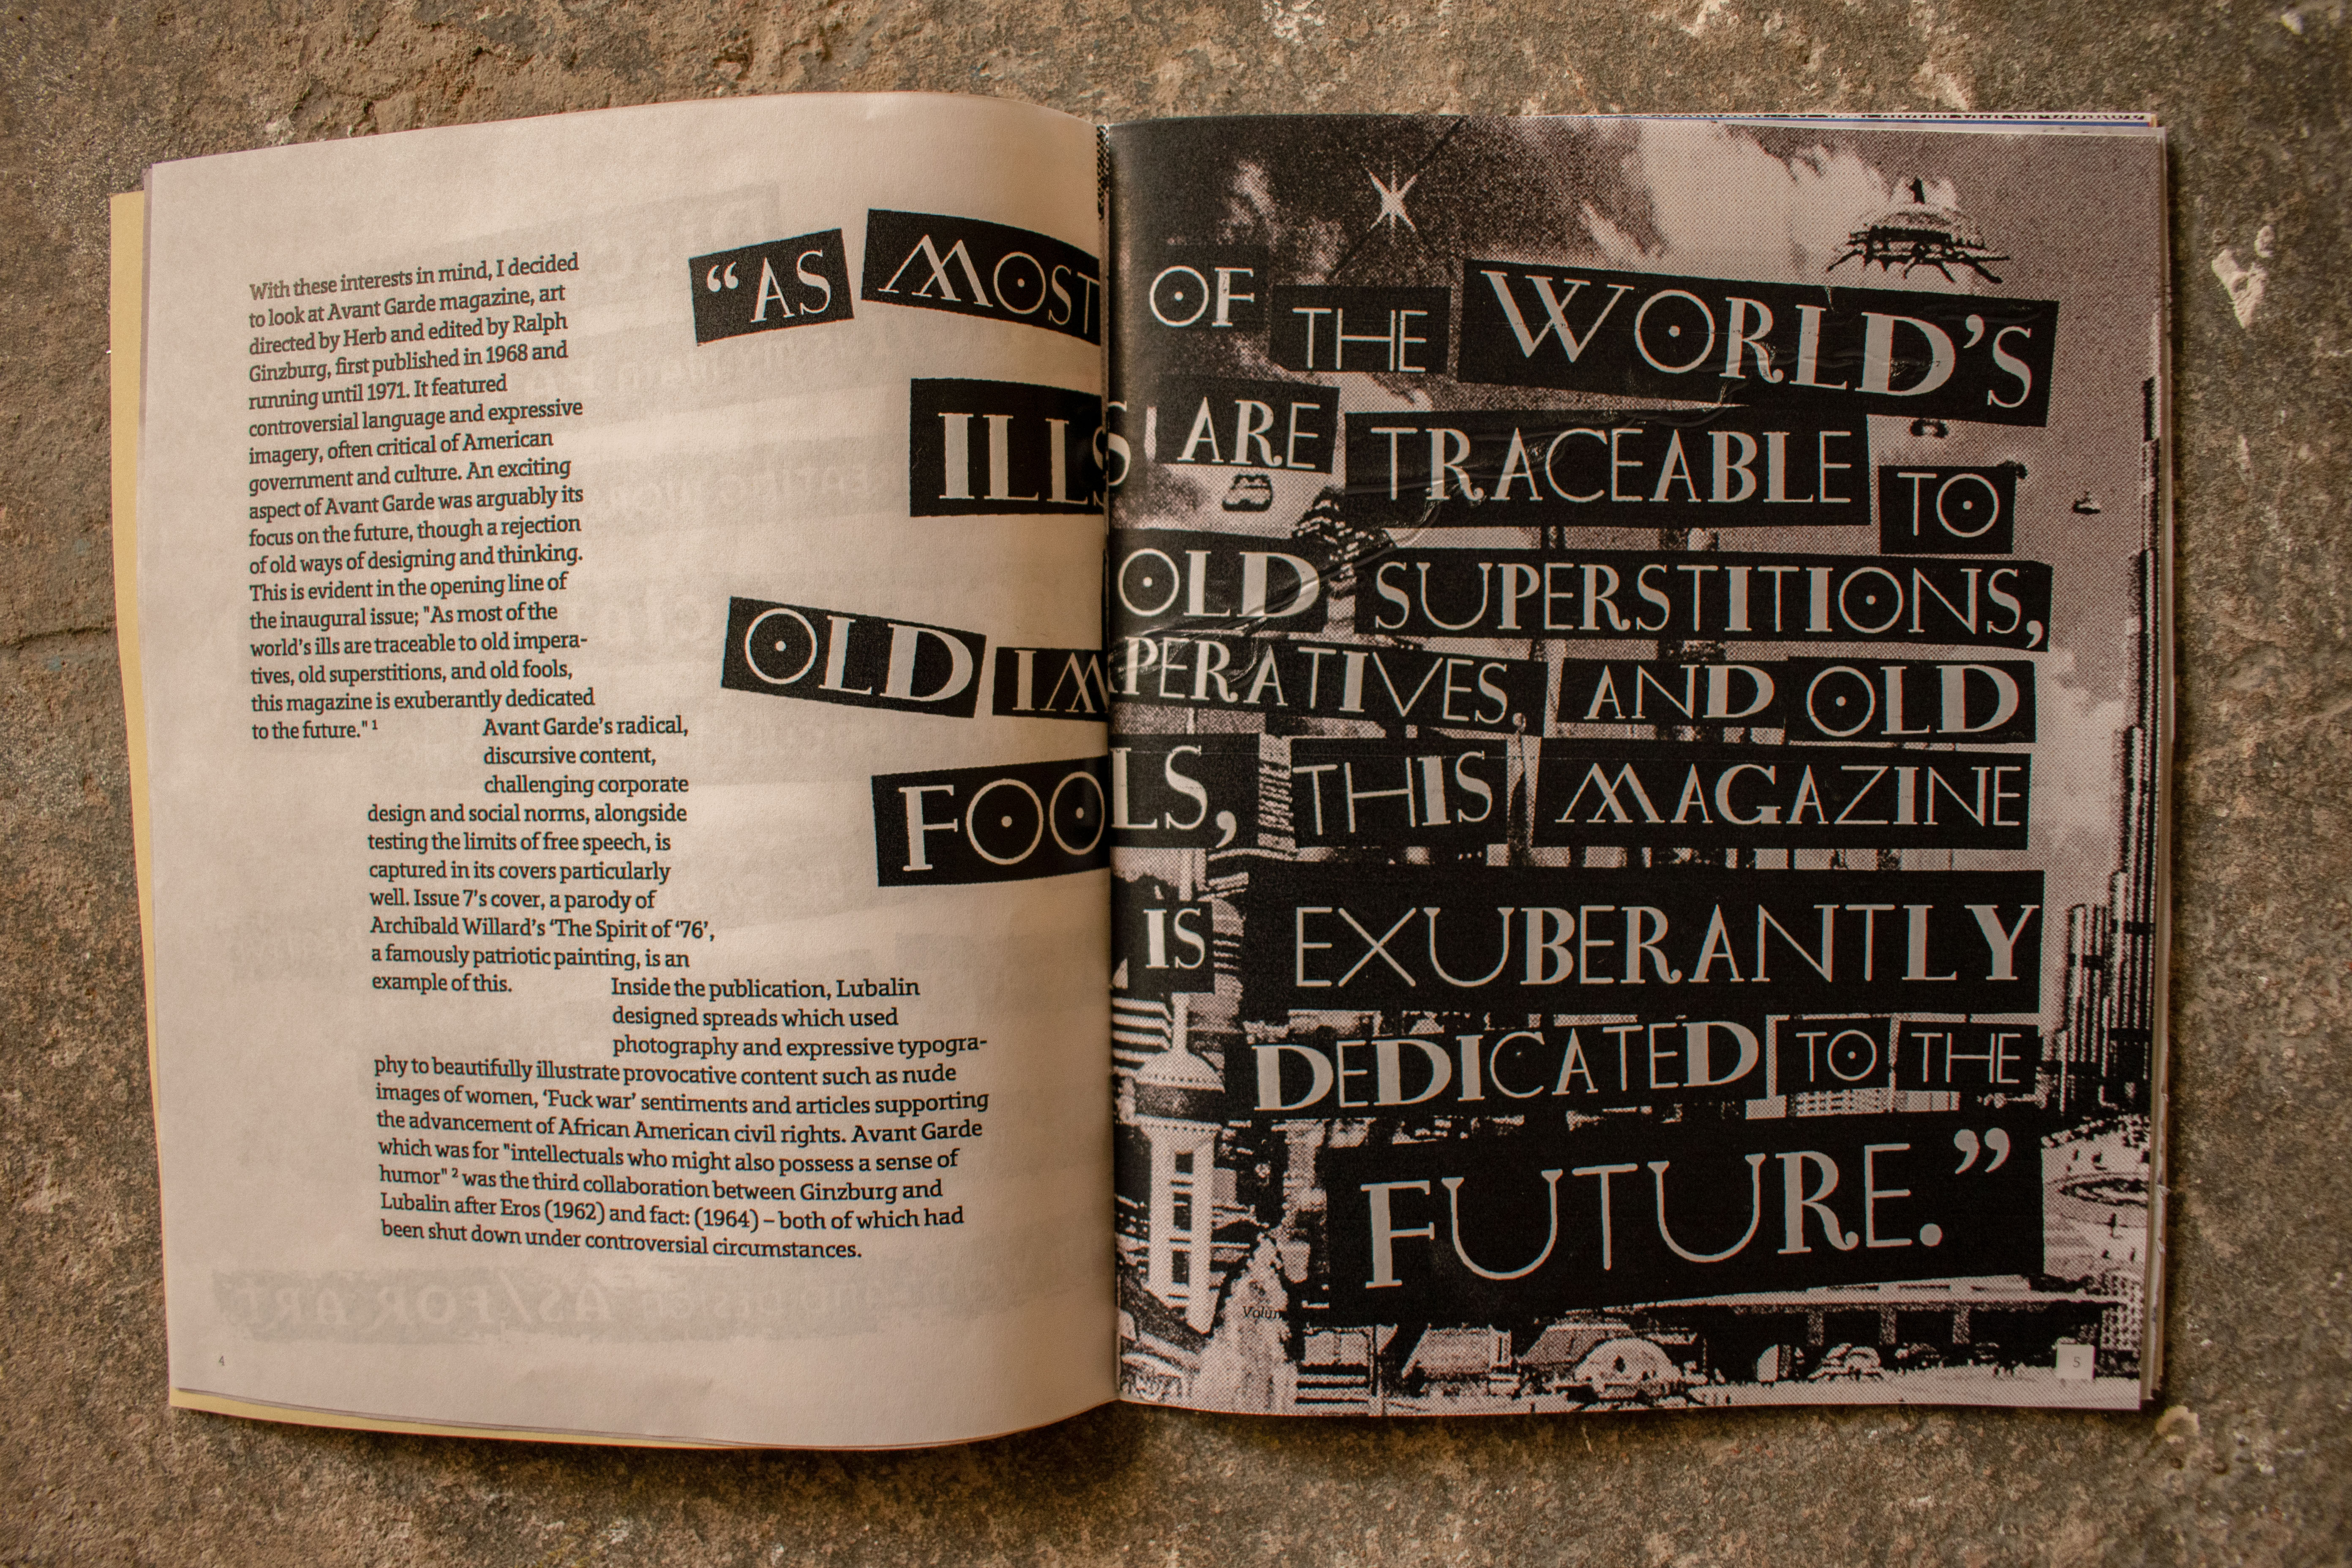 With these interests in mind, I decided
to look at Avant Garde magazine, art
directed by Herb and edited by Ralph
Ginzburg, first published in 1968 and
running until 1971. It featured
controversial language and expressive
imagery, often critical of American
government and culture. An exciting
aspect of Avant Garde was arguably its
focus on the future, though a rejection
of old ways of designing and thinking.
This is evident in the opening line of
the inaugural issue; "As most of the
world's ills are traceable to old impera-
tives, old superstitions, and old fools,
this magazine is exuberantly dedicated
to the future." 1
Avant Garde's radical,
discursive content,
challenging corporate
design and social norms, alongside
testing the limits of free speech, is
captured in its covers particularly
well. Issue 7's cover, a parody of
Archibald Willard's ‘The Spirit of ‘76’,
a famously patriotic painting, is an
example of this.
Inside the publication, Lubalin
designed spreads which used
photography and expressive typogra-
phy to beautifully illustrate provocative content such as nude
images of women, ‘Fuck war’ sentiments and articles supporting
the advancement of African American civil rights. Avant Garde
which was for "intellectuals who might also possess a sense of
humor" 2 was the third collaboration between Ginzburg and
Lubalin after Eros (1962) and fact: (1964) – both of which had
been shut down under controversial circumstances.
4
“AS MOST OF THE WORLD’S
ILLS ARE TRACEABLE TO
OLD SUPERSTITIONS,
OLD IMPERATIVES, AND OLD
FOOLS, THIS MAGAZINE
IS EXUBERANTLY
DEDICATED TO THE
FUTURE.”
5